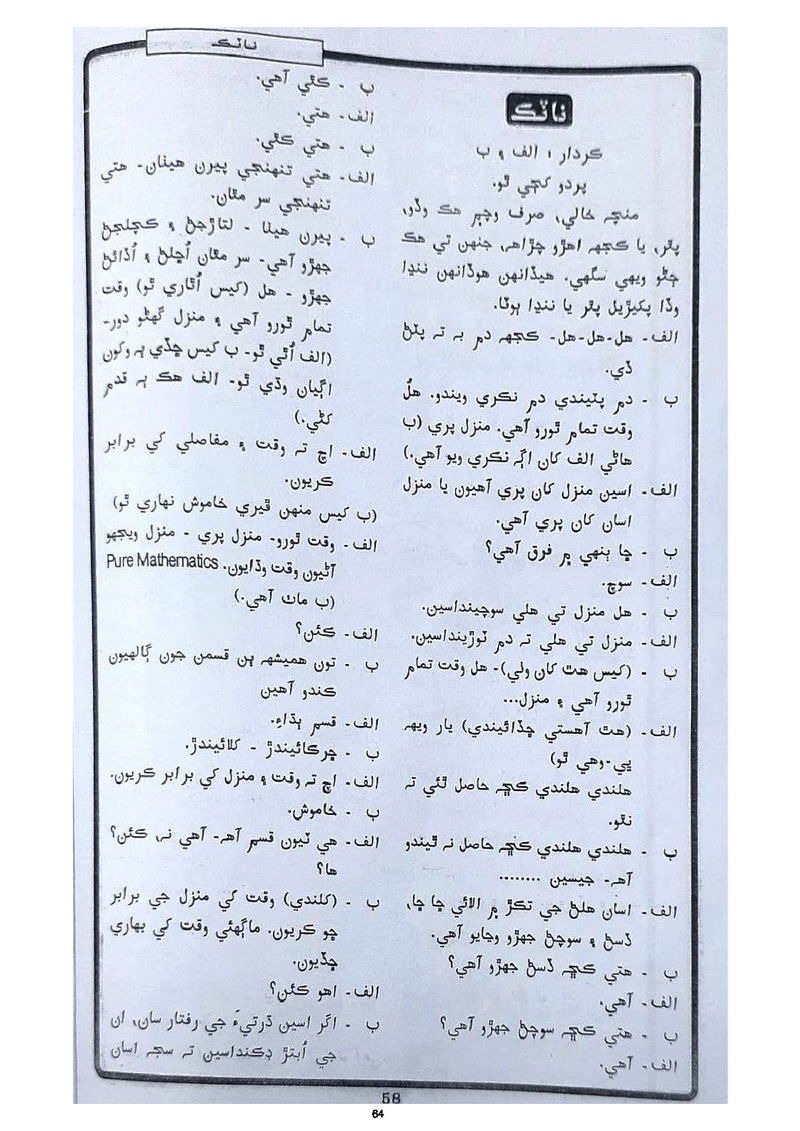 ناٽڪ
ناٽڪ
ڪردار : الف ۽ ب
پردو کڄي ٿو.
منڇہ خالي، صرف وچ۾ هڪ وڏو،
پٿر، يا ڪجهہ اهڙو چڙاهہ، جنهن تي هڪ
ڄڻو ويهي سگهي. هيڏانهن هوڏانهن ننڍا
وڏا پکيڙيل پٿر يا ننڍا ٻوٽا.
الف- هل-هل-هل- ڪجهہ دم بہ تہ پٽڻ
ڏي.
ب - دم پٽيندي دم نڪري ويندو. هلُ
وقت تمام ٿورو آهي. منزل پري (ب
هاڻي الف کان اڳہ نڪري ويو آهي.)
الف- اسين منزل کان پري آهيون يا منزل
اسان کان پري آهي.
ب - ڇا ٻنهي ۾ فرق آهي؟
الف- سوچ.
ب - هل منزل تي هلي سوچينداسين.
الف- منزل تي هلي تہ دم ٽوڙينداسين.
ب - (کيس هٿ کان ولي)- هل وقت تمام
ٿورو آهي ۽ منزل...
الف- (هٿ آهستي ڇڏائيندي) يار ويهہ
ڀي-وهي ٿو)
هلندي هلندي ڪڇہ حاصل ٿئي تہ
نٿو.
ب - هلندي هلندي ڪڇہ حاصل نہ ٿيندو
آهہ- جيسين ........
الف- اسان هلڻ جي تڪڙ ۾ الائي ڇا ڇا،
ڏسڻ ۽ سوچڻ جهڙو وڃايو آهي.
ب - هتي ڪڇہ ڏسڻ جهڙو آهي؟
الف- آهي.
ب - هتي ڪڇہ سوچڻ جهڙو آهي؟
الف- آهي.
ب - ڪٿي آهي.
الف- هتي.
ب - هتي ڪٿي.
الف- هتي تنهنجي پيرن هيٺان- هتي
تنهنجي سر مٿان.
ب - پيرن هيٺا - لتاڙجڻ ۽ ڪچلجڻ
جهڙو آهي- سر مٿان اُڇلڻ ۽ اُڏائڻ
جهڙو - هل (کيس اُٿاري ٿو) وقت
تمام ٿورو آهي ۽ منزل گهڻو دور-
(الف اُٿي ٿو- ب کيس ڇڏي ٻہ وکون
اڳيان وڌي ٿو- الف هڪ ٻہ قدم
کڻي.)
الف- اچ تہ وقت ۽ مفاصلي کي برابر
ڪريون.
(ب کيس منهن ڦيري خاموش نهاري ٿو)
الف- وقت ٿورو- منزل پري - منزل ويجهو
آڻيون وقت وڌايون. Pure Mathematics
(ب ماٺ آهي.)
الف- ڪئن؟
ب - تون هميشهہ ٻن قسمن جون ڳالهيون
ڪندو آهين
الف- قسم ٻڌاءِ.
ب - چرڪائيندڙ - کلائيندڙ.
الف- اچ تہ وقت ۽ منزل کي برابر ڪريون.
ب - خاموش.
الف- هي ٽيون قسم آهہ- آهي نہ، ڪئن؟
ها؟
ب - (کلندي) وقت کي منزل جي برابر
ڇو ڪريون. ماڳهئي وقت کي بهاري
ڇڏيون.
الف- اهو ڪئن؟
ب - اگر اسين ڌرتيءَ جي رفتار سان، ان
جي اُبتڙ ڊڪنداسين تہ سڄہ اسان
58
64